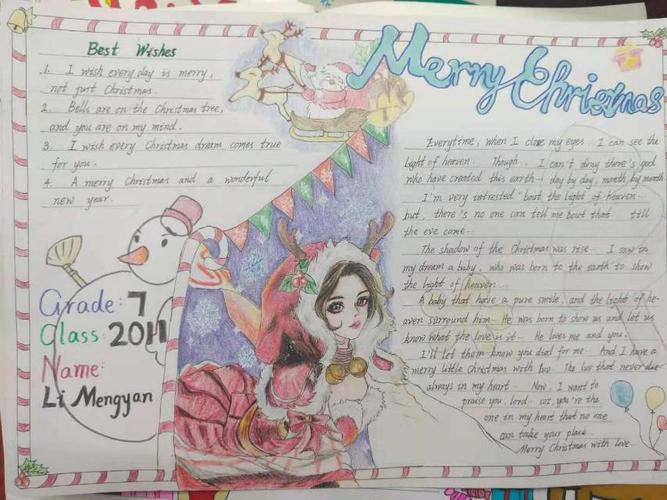 Merry Christmas
Best Wishes
1. I wish every day is merry,
not just Christmas.
2. Bells are on the Christmas tree,
and you are on my mind.
3. I wish every Christmas dream comes true
for you.
4. A merry Christmas and a wonderful
new year.
Grade: 7
Class: 2011
Name:
Li Mengyan
Everytime, when I close my eyes I can see the
light of heaven. Though, I can't deny there's god
who have created this earth - day by day, month by month
I'm very intrested "bout the light of heaven
but, there's no one can tell me bout that till
the eve come
The shadow of the Christmas was rise I saw in
my dream a baby, who was born to the earth to show
the light of heaven
A baby that have a pure smile, and the light of he-
aven surround him He was born to show us and let us
know what the love is it He loves me and you.
I'll let them know you died for me And I have a
merry little Christmas with luv The luv that never die
always in my heart Now, I want to
praise you, lord coz, you're the
one in my heart that no one
can take your place
Merry Christmas with love